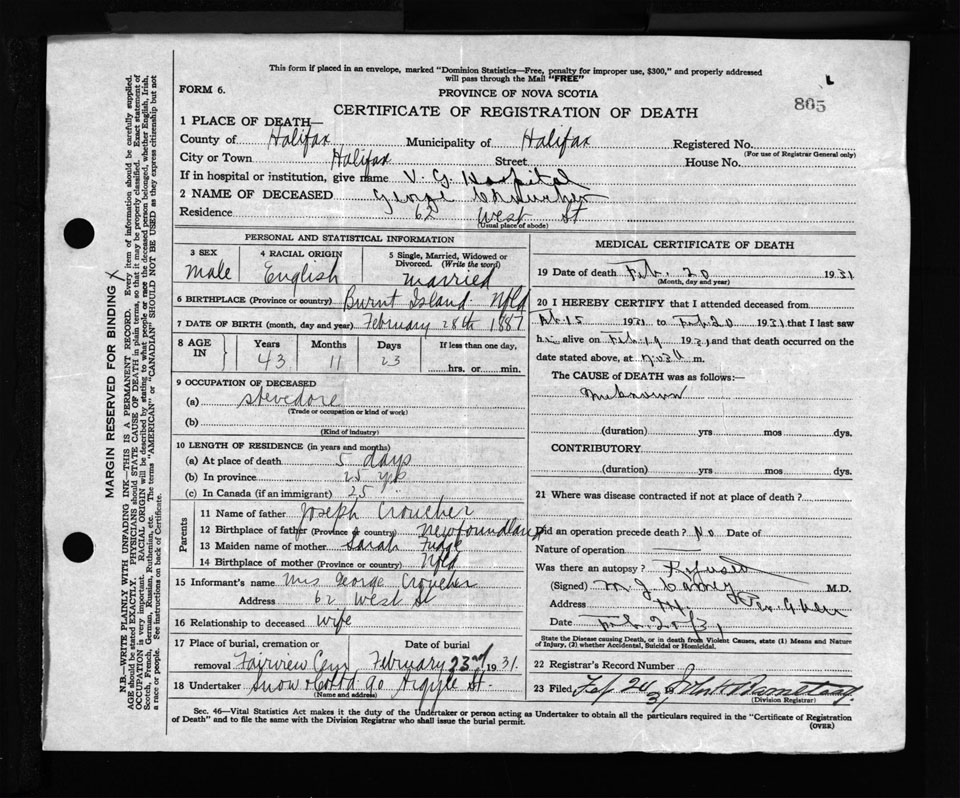 This form if placed in an envelope, marked "Dominion Statistics—Free, penalty for improper use, $300," and properly addressed
will pass through the Mail "FREE"
FORM 6.
PROVINCE OF NOVA SCOTIA
L
805
CERTIFICATE OF REGISTRATION OF DEATH
1 PLACE OF DEATH—
County of Halifax Municipality of Halifax Registered No.
(For use of Registrar General only)
City or Town Halifax Street House No.
If in hospital or institution, give name V. G. Hospital
2 NAME OF DECEASED George Croucher
Residence 62 West St
(Usual place of abode)
PERSONAL AND STATISTICAL INFORMATION
3 SEX 4 RACIAL ORIGIN 5 Single, Married, Widowed or
Divorced. (Write the word)
Male English Married
6 BIRTHPLACE (Province or country) Burnt Island Nfld
7 DATE OF BIRTH (month, day and year) February 28th 1887
8 AGE IN Years Months Days If less than one day,
43 11 23 hrs. or min.
9 OCCUPATION OF DECEASED
(a) stevedore
(Trade or occupation or kind of work)
(b)
(Kind of industry)
10 LENGTH OF RESIDENCE (in years and months)
(a) At place of death 5 days
(b) In province 25 yrs
(c) In Canada (if an immigrant) 25
Parents
11 Name of father Joseph Croucher
12 Birthplace of father (Province or country) Newfoundland
13 Maiden name of mother Sarah Fudge
14 Birthplace of mother (Province or country) Nfld
15 Informant's name Mrs George Croucher
Address 62 West St
16 Relationship to deceased Wife
17 Place of burial, cremation or Date of burial
removal Fairview Cem February 23rd 1931.
18 Undertaker Snow & Co Ltd 90 Argyle St.
(Name and address)
MEDICAL CERTIFICATE OF DEATH
19 Date of death Feb. 20 1931
(Month, day and year)
20 I HEREBY CERTIFY that I attended deceased from
Feb. 15 1931 to Feb. 20 1931 that I last saw
him alive on Feb. 19 1931 and that death occurred on the
date stated above, at m.
The CAUSE of DEATH was as follows:—
Unknown
(duration) yrs mos dys.
CONTRIBUTORY.
(duration) yrs mos dys.
21 Where was disease contracted if not at place of death?
Did an operation precede death? No Date of
Nature of operation
Was there an autopsy? Refused
(Signed) M. J. M.D.
Address
Date Feb. 20/31
State the Disease causing Death, or in death from Violent Causes, state (1) Means and Nature
of Injury, (2) whether Accidental, Suicidal or Homicidal.
22 Registrar's Record Number
23 Filed Feb 24 1931
(Division Registrar)
Sec. 46—Vital Statistics Act makes it the duty of the Undertaker or person acting as Undertaker to obtain all the particulars required in the "Certificate of Registration
of Death" and to file the same with the Division Registrar who shall issue the burial permit.
(OVER)
MARGIN RESERVED FOR BINDING X
N.B.—WRITE PLAINLY WITH UNFADING INK—THIS IS A PERMANENT RECORD. Every item of information should be carefully supplied.
AGE should be stated EXACTLY. PHYSICIANS should STATE CAUSE OF DEATH in plain terms, so that it may be properly classified. Exact statement of
OCCUPATION is very important. RACIAL ORIGIN will be described by stating to what people or race the deceased person belonged, whether English, Irish,
Scotch, French, German, Russian, Ruthenian, etc. The terms "AMERICAN" or "CANADIAN" SHOULD NOT BE USED as they express citizenship but not
a race or people. See instructions on back of Certificate.